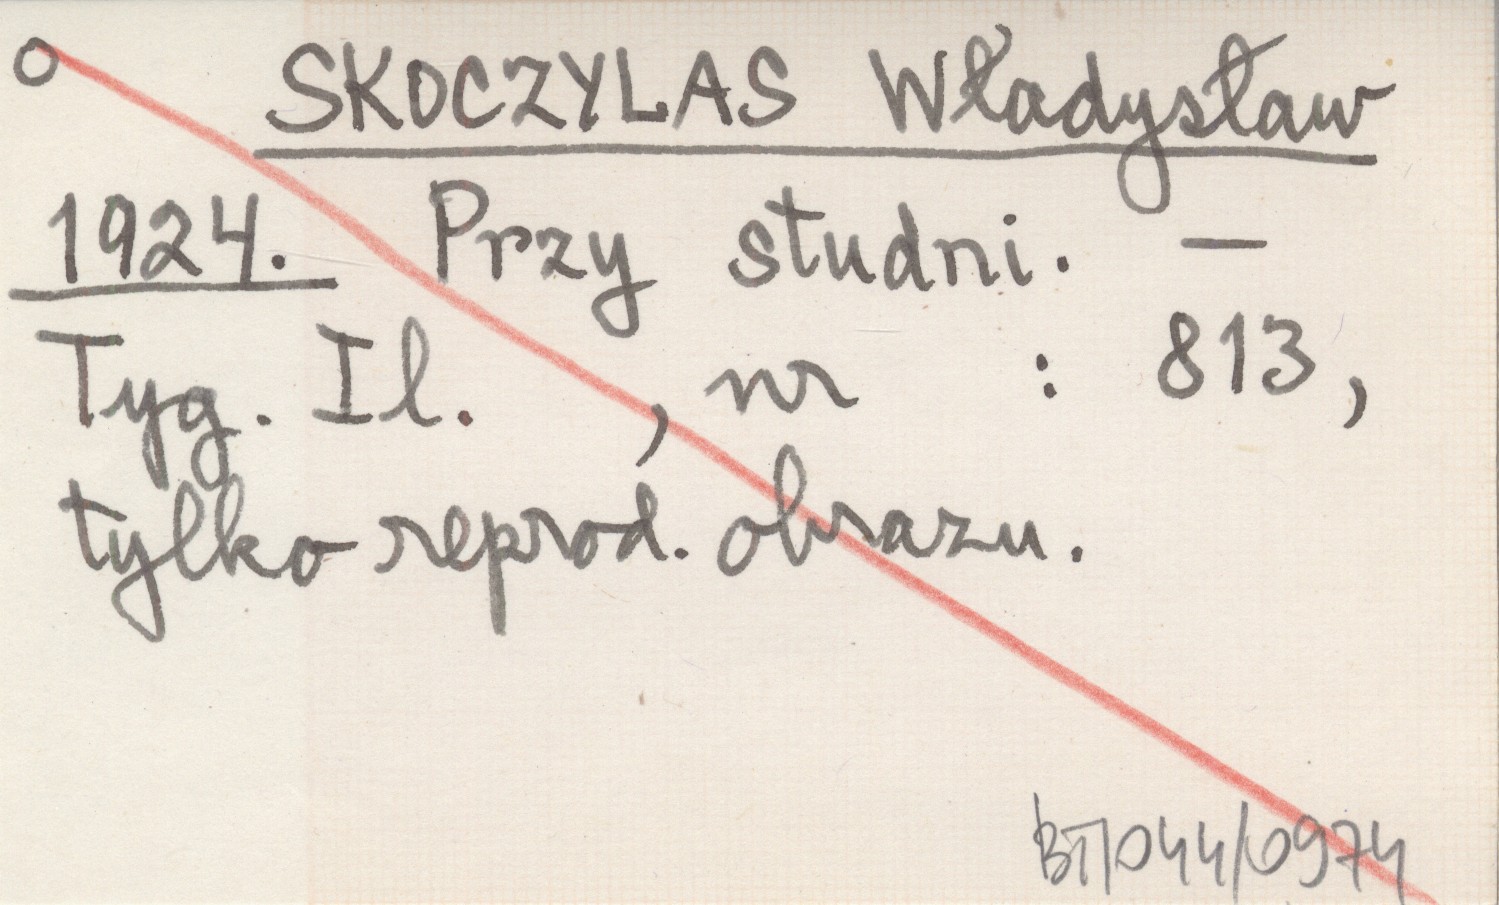 o SKOCZYLAS Władysław
1924. Przy studni. —
Tyg. Il. , nr : 813,
tylko reprod. obrazu.
BT/044/0974